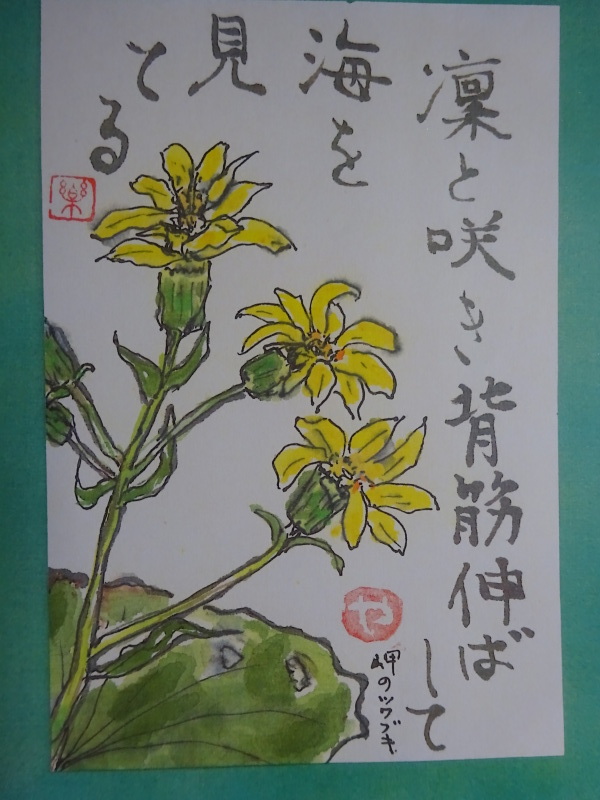 凜と咲き背筋伸ばして
海を
見
とる
楽
せ
岬のツワブキ